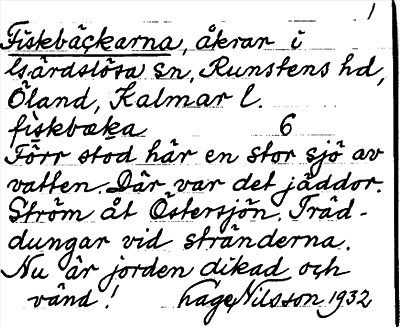 1
Fiskbäckarna, åkrar i
Gårdslösa sn, Runstens hd,
Öland, Kalmar l.
fiskbæka 6
Förr stod här en stor sjö av
vatten. Där var det jäddor.
Ström åt Östersjön. Träd-
dungar vid stränderna.
Nu är jorden dikad och
vänd! Nilsson 1932